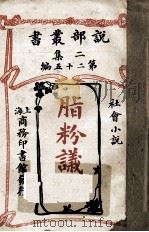 說部叢書
二集
第二十五編
社會小說
脂粉議員
上海商務印書館發行